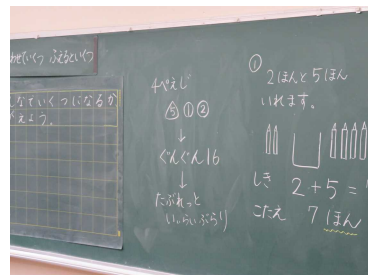 わせていくつ ふえるといくつ
しなていくつになるか
えよう。
4ぺえじ
⑤①②
↓
ぐんぐん16
↓
たぶれっと
いっらいぶらり
①
2ほんと5ほん
いれます。
しき 2+5=
こたえ 7ほん